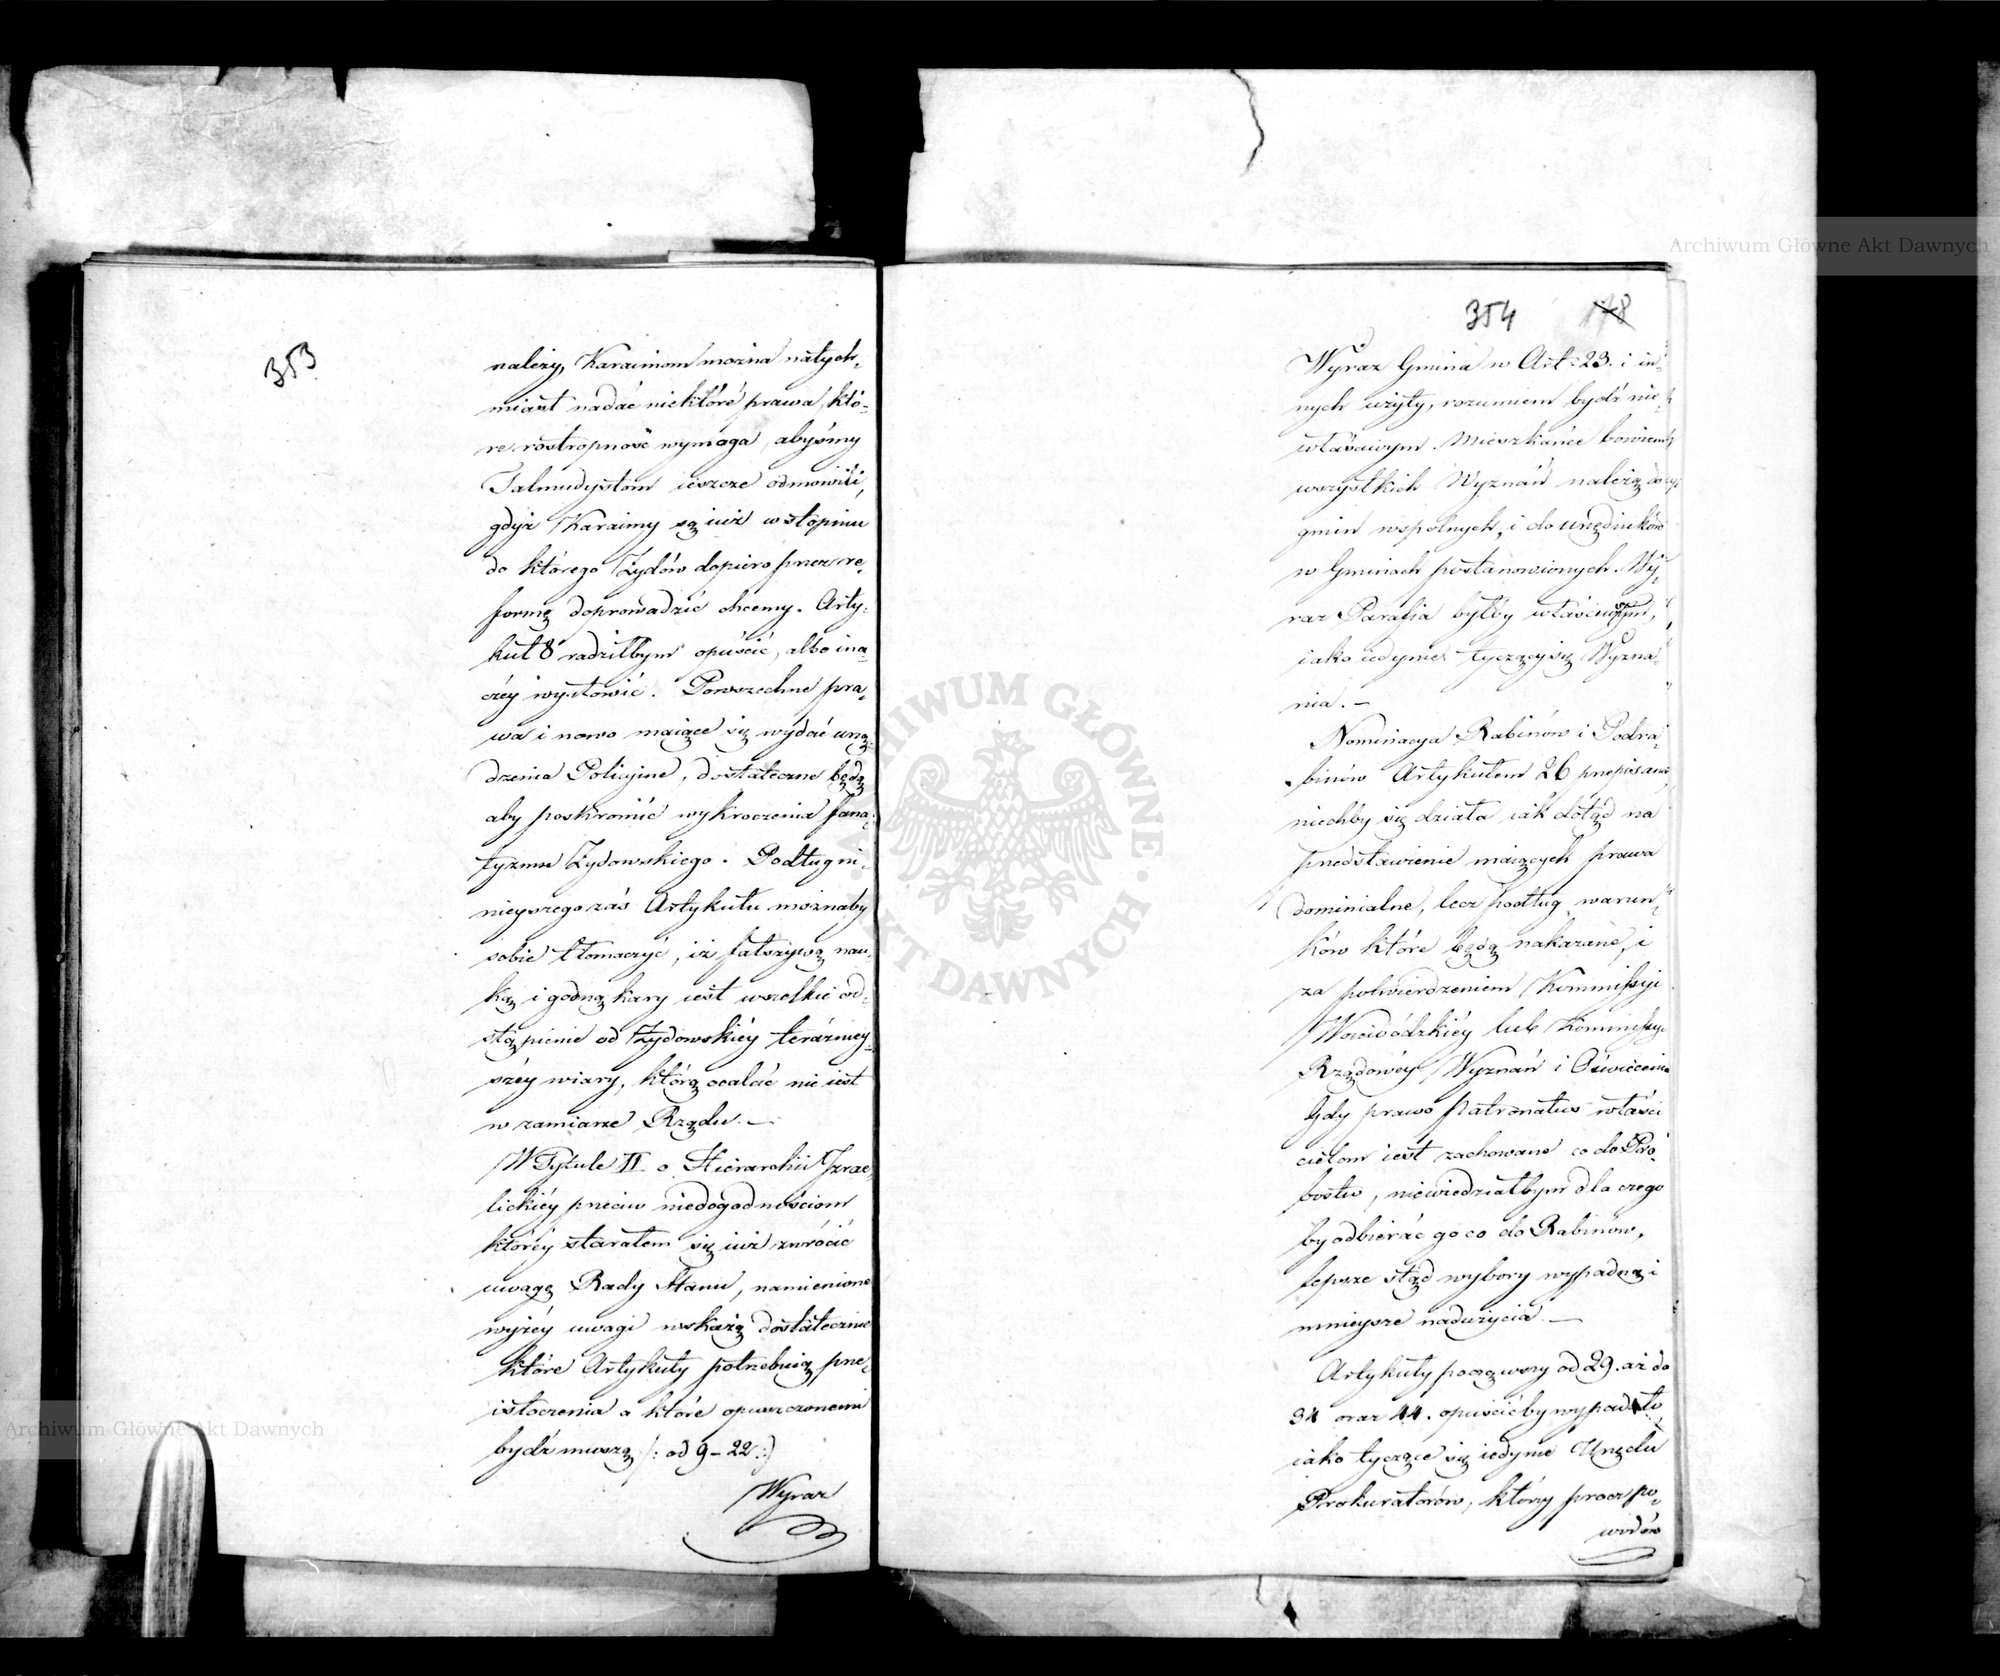 353
należy, Karaimom można natych-
miast nadać niektóré prawa, któ-
re rostropność wymaga, abyśmy
Talmudystom ieszcze odmówili,
gdyż Karaimy są iuż w stopniu
do którego Żydów dopiero przez re-
formę doprowadzić chcemy. Arty-
kuł 8 radziłbym opuścić, albo ina-
czéy wysłowić. Powszechne pra-
wa i nowo maiące się wydać urzą-
dzenia Policyine, dostateczne będą
aby poskromić wykroczenia fana-
tyzmu Żydowskiego. Podług ni-
nieyszego zaś Artykułu możnaby
sobie tłomaczyć, iż fałszywą nau-
ką i godną kary iest wszelkie od-
stąpienie od Żydowskiéy teraźniey-
széy wiary, którą ocalać nie iest
w zamiarze Rządu. —
W Tytule II o Hierarchii Izrae-
lickiéy przeciw niedogodnościom
któréy starałem się iuż zwrócić
uwagę Rady Stanu, namienione
wyżéy uwagi wskażą dostatecznie
które Artykuły potrzebuią prze-
istoczenia a które opuszczonemi
bydź muszą /: od 9 – 22 :/
Wyraz
354 178
Wyraz Gmina w Art: 23. i in-
nych użyty, rozumiem bydź nie-
właściwym. Mieszkańce bowiem
wszystkich Wyznań należą do
gmin wspólnych, i do urzędników
w Gminach postanowionych. Wy-
raz Parafia byłby właściwszym,
iako iedynie tyczący się Wyzna-
nia. —
Nominacya Rabinów i Podra-
binów Artykułem 26 przepisana
niechby się działa iak dotąd na
przedstawienie maiących prawa
dominialne, lecz podług warun-
ków które będą nakazane, i
za potwierdzeniem Kommissyi
Woiewódzkiéy lub Kommissyi
Rządowéy Wyznań i Oświecenia
Gdy prawo Patronatus właści
cielom iest zachowane co do Pro-
bostw, niewiedziałbym dla czego
by odbierać go co do Rabinów,
lepsze stąd wybory wypadną i
mnieysze nadużycia. —
Artykuły począwszy od 29. aż do
34 oraz 44. opuścićby wypadało
iako tyczące się iedynie Urzędu
Prokuratorów, którzy prócz po-
wodów
Archiwum Główne Akt Dawnych
Archiwum Główne Akt Dawnych
ARCHIWUM GŁÓWNE AKT DAWNYCH